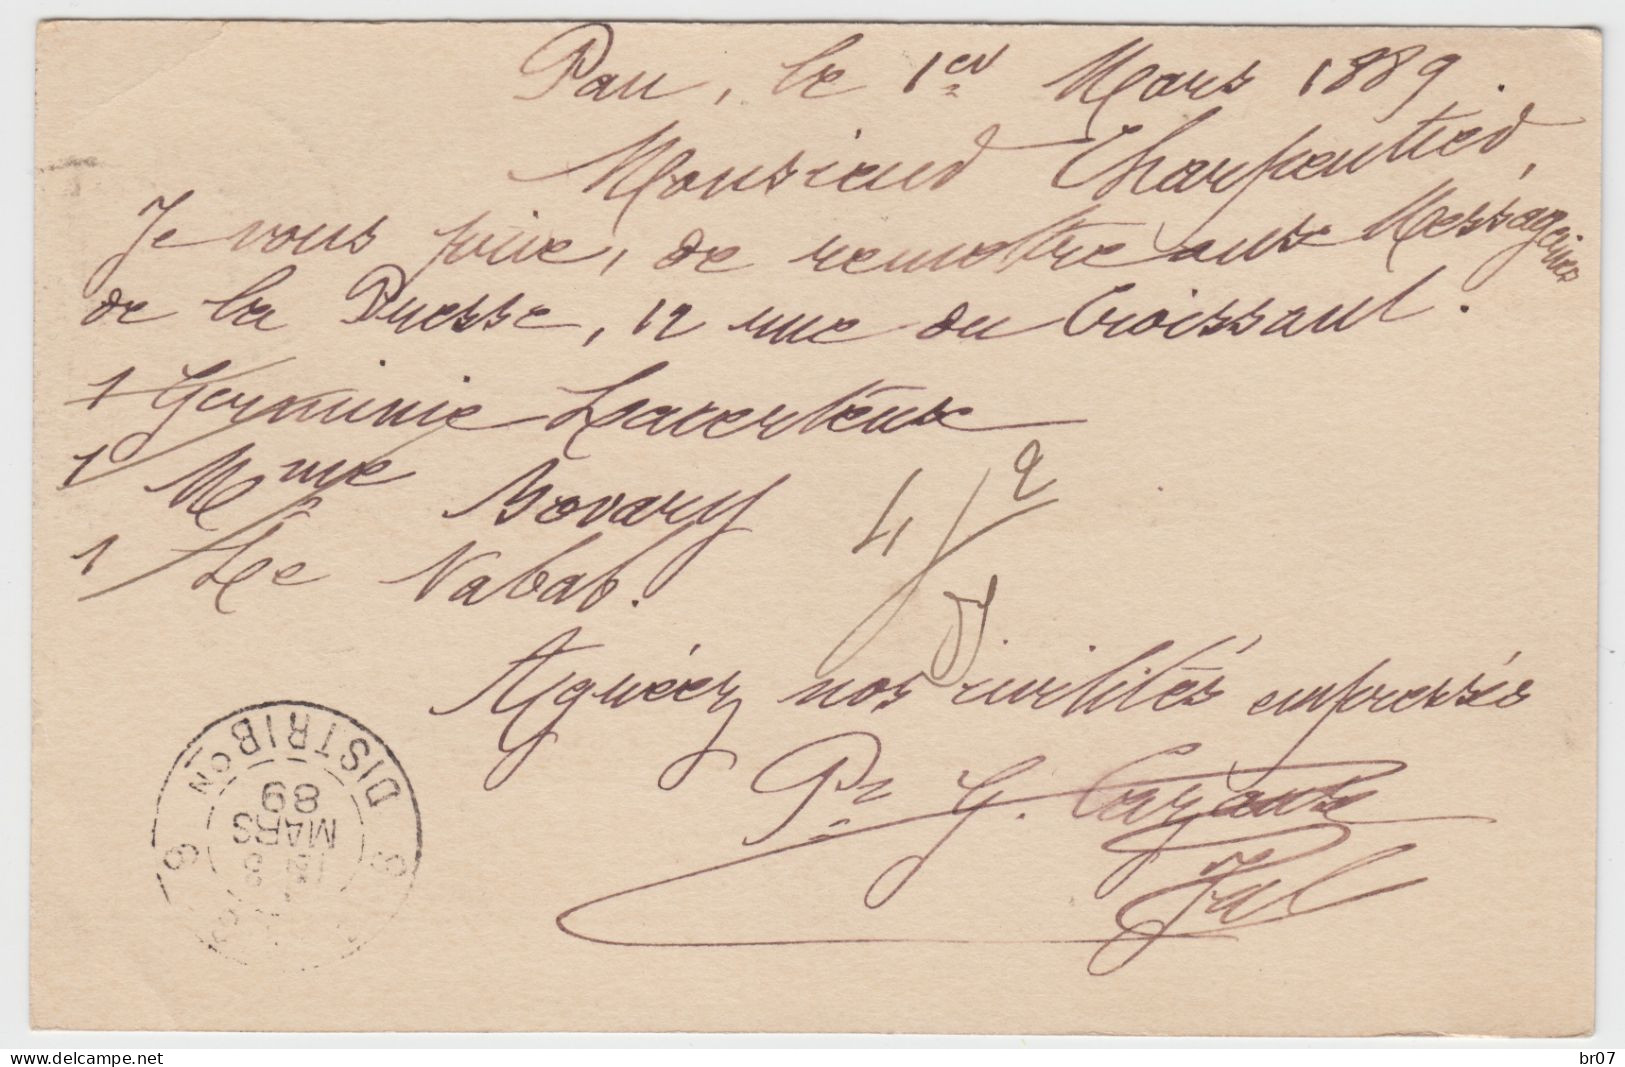 Pau, le 1er Mars 1889.
Monsieur Charpentier,
Je vous prie, de remettre aux Messageries
de la Presse, 12 rue du Croissant.
1 Germinie Lacerteux
1 Mme Bovary
1 Le Nabab.
4/2
Agréez nos civilités empressés
Pr G. Cazaux
DISTRIBON
6 6
MARS
89
br07